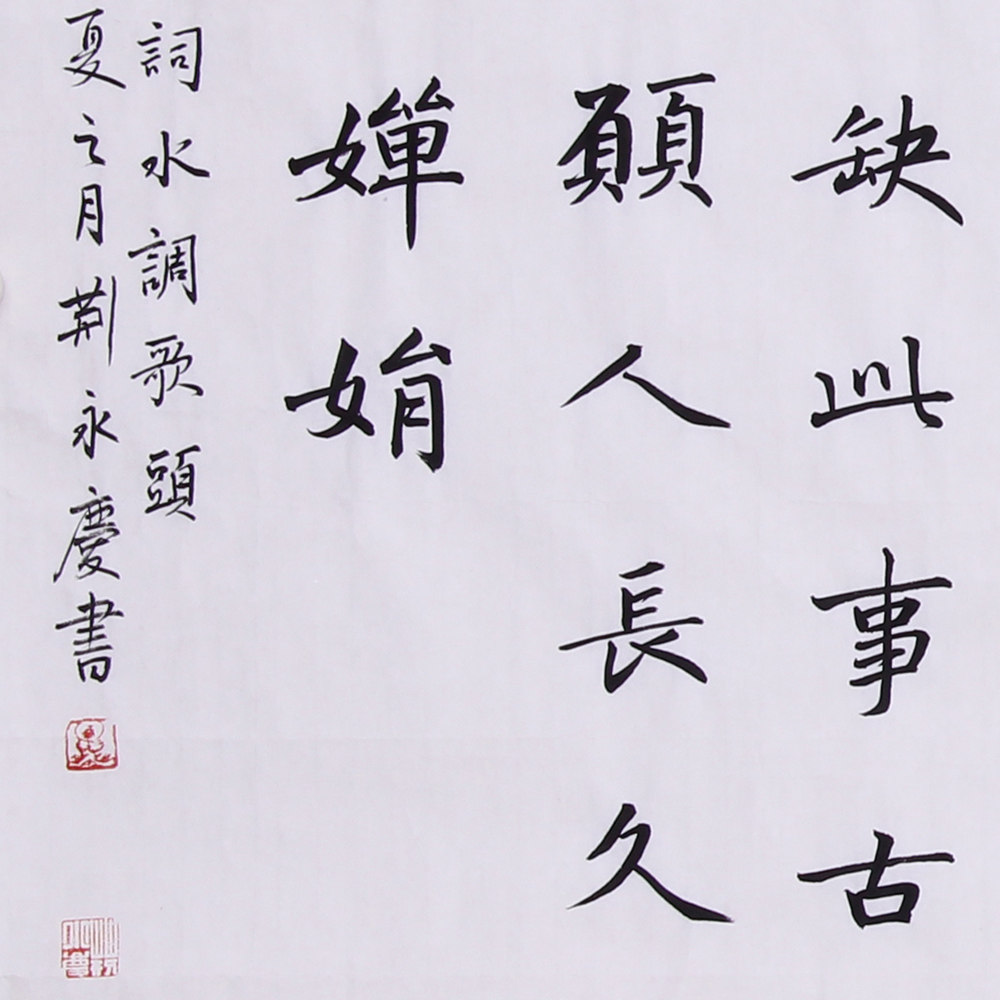 缺此事古
願人長久
嬋娟
詞水調歌頭
夏之月荆永慶書